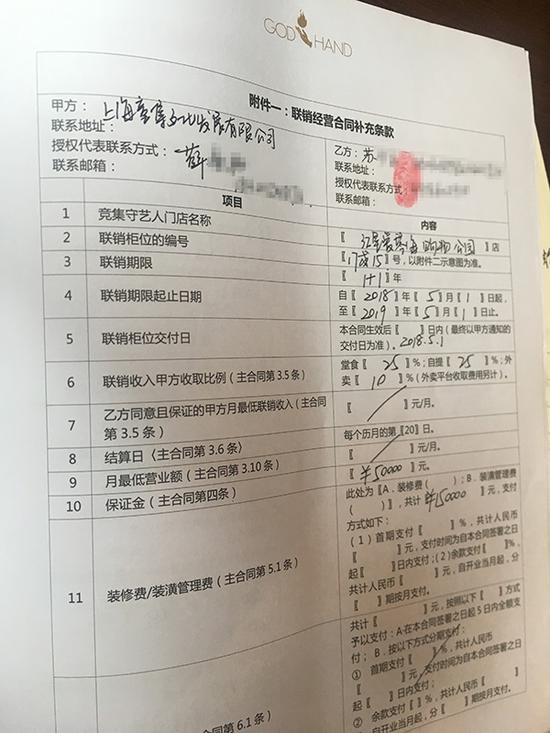 GOD HAND
附件一：联销经营合同补充条款
甲方：上海 文化发展有限公司
联系地址：
授权代表联系方式：薛
联系邮箱：
乙方：苏
联系地址：
授权代表联系方式：
联系邮箱：
项目
内容
1 竞集守艺人门店名称
【 购物公园】店
2 联销柜位的编号
【 15】号，以附件二示意图为准。
3 联销期限
【 1+1 】年
4 联销期限起止日期
自【 2018 】年【 5 】月【 1 】日起，
至【 2019 】年【 5 】月【 1 】日止。
5 联销柜位交付日
本合同生效后【 】日内（最终以甲方通知的
交付日为准）. 2018.5.1
6 联销收入甲方收取比例（主合同第 3.5 条）
堂食【 25 】%；自提【 25 】%；外
卖【 10 】%（外卖平台收取费用另计）。
7 乙方同意且保证的甲方月最低联销收入（主合同
第 3.5 条）
【 】元/月。
8 结算日（主合同第 3.6 条）
每个历月的第【20】日。
9 月最低营业额（主合同第 3.10 条）
【 】元/月。
10 保证金（主合同第四条）
【 ¥50000 】元。
11 装修费/装潢管理费（主合同第 5.1 条）
此处为【A．装修费（ ）；B．装潢管理费
（ ）】，共计【¥150000 】元，支付
方式如下：
（1）首期支付【 】%，共计人民币
【 】元，支付时间为自本合同签署之日
起【 】日内支付；（2）余款支付【 】%，
共计人民币【 】元，自开业当月起，分
【 】期按月支付。
第 6.1 条）
共计【 】元，按照以下【 】方式
予以支付：A.在本合同签署之日起 5 日内全额支
付；B．按以下方式分期支付：
① 首期支付【 】%，共计人民币
【 】元，支付时间为自本合同签署之日
起【 】日内支付；
② 余款支付【 】%，共计人民币【 】
自开业当月起，分【 】期按月支付。